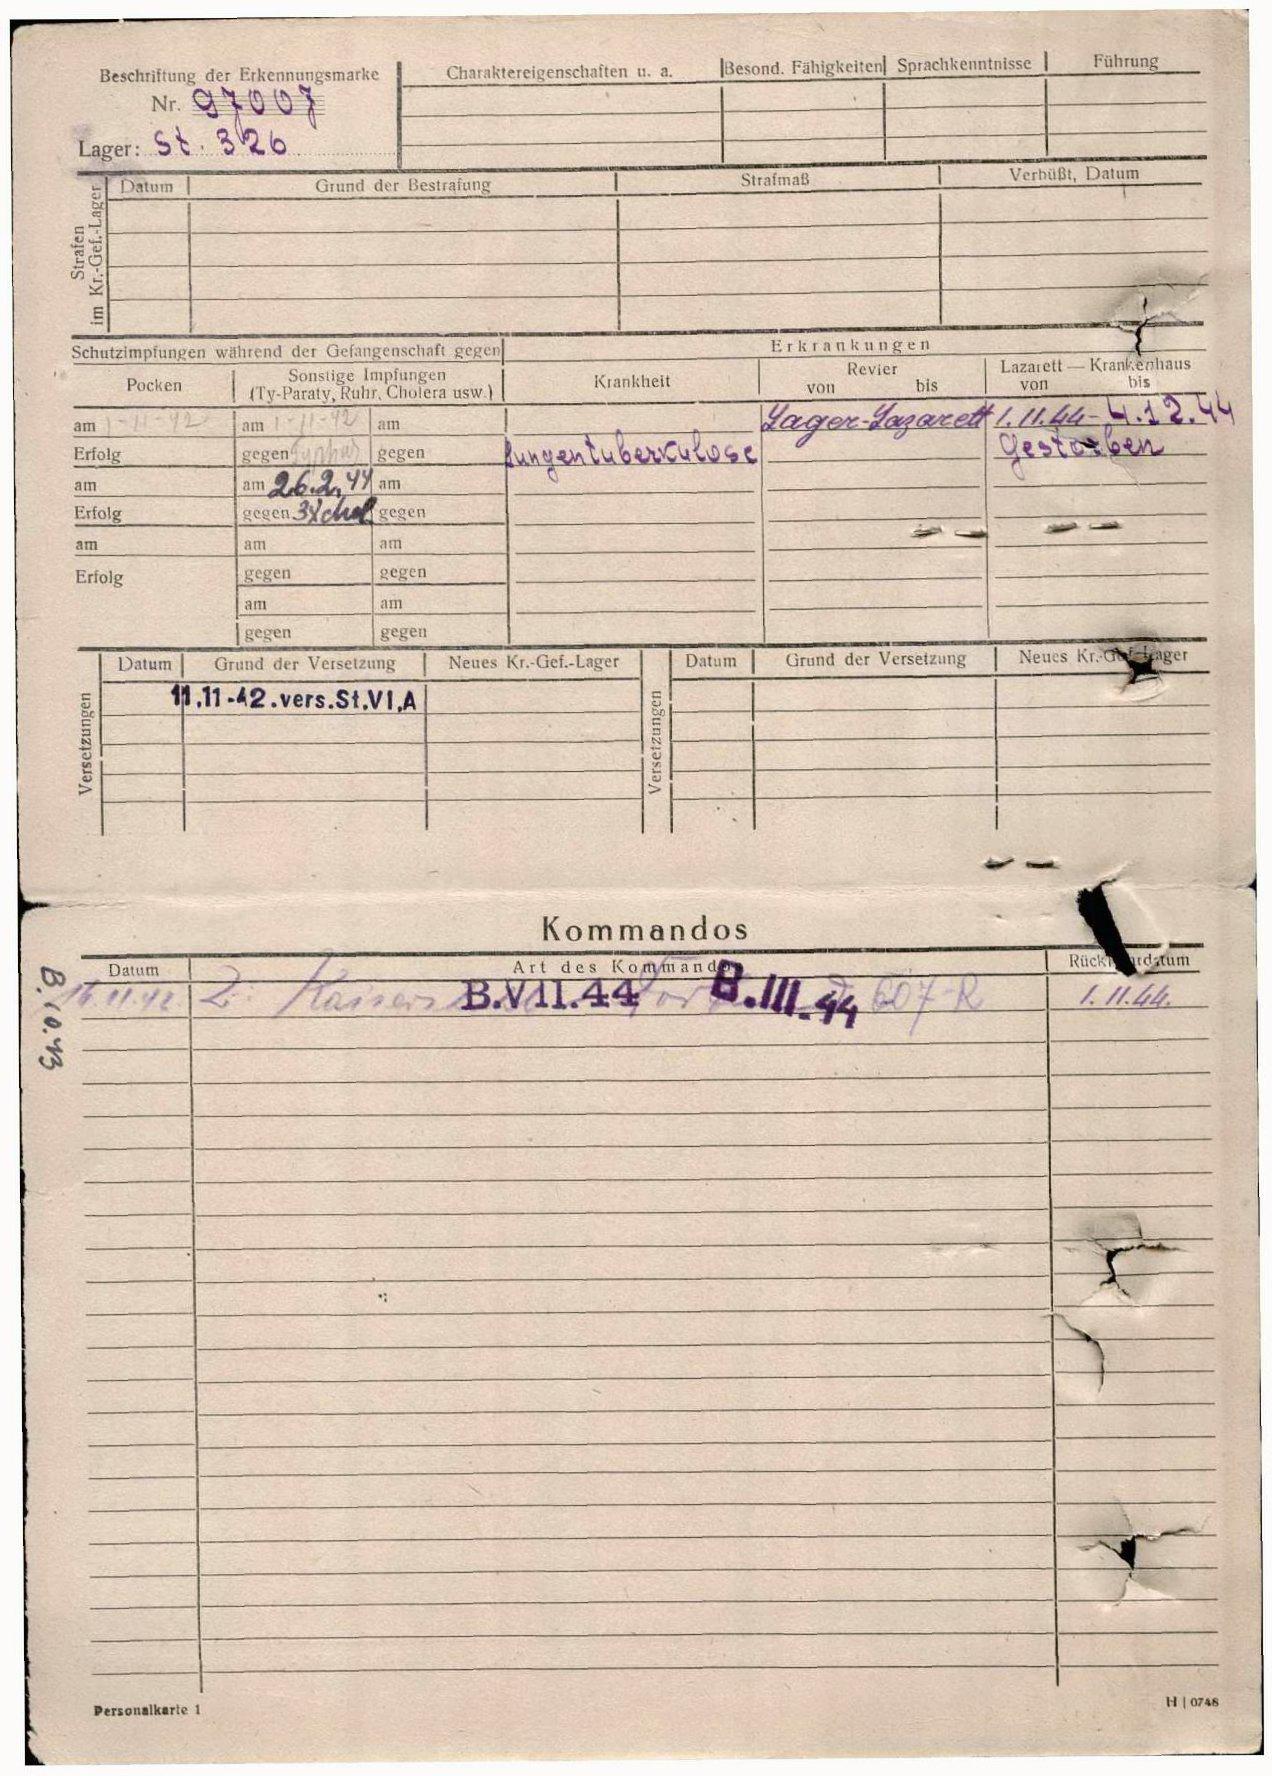 Beschriftung der Erkennungsmarke
Nr. 97007
Lager: St. 326
Charaktereigenschaften u. a. Besond. Fähigkeiten Sprachkenntnisse Führung
Strafen im Kr.-Gef.-Lager
Datum Grund der Bestrafung Strafmaß Verbüßt, Datum
Schutzimpfungen während der Gefangenschaft gegen Erkrankungen
Pocken Sonstige Impfungen (Ty-Paraty, Ruhr, Cholera usw.) Krankheit Revier von bis Lazarett — Krankenhaus von bis
am 1-11-42 am 1-11-42 am Lager-Lazarett 1.11.44 - 4.12.44
Erfolg gegen Typhus gegen Lungentuberkulose Gestorben
am am 26.2.44 am
Erfolg gegen 3x chol. gegen
am am am
Erfolg gegen gegen
am am
gegen gegen
Versetzungen
Datum Grund der Versetzung Neues Kr.-Gef.-Lager
11.11-42.vers.St.VI,A
Versetzungen
Datum Grund der Versetzung Neues Kr.-Gef.-Lager
Kommandos
Datum Art des Kommandos Rückkehrdatum
16.11.42. Z. B.VII.44 B.III.44 607-R 1.11.44.
B. 10.43
Personalkarte 1
H | 0748